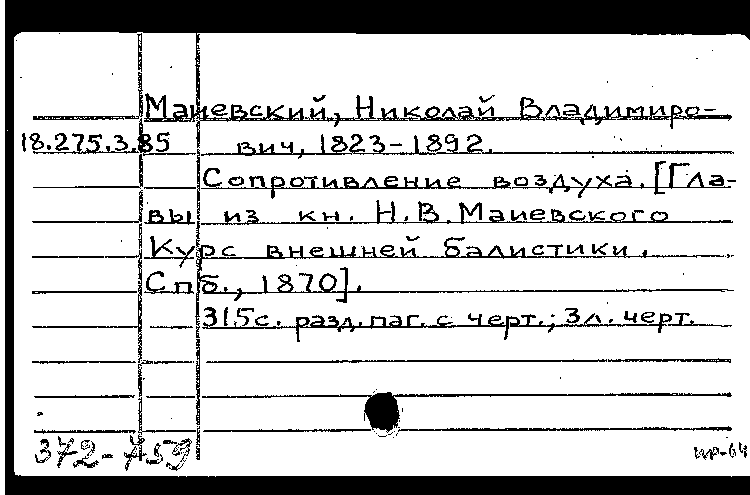 Маиевский, Николай Владимиро-
18.275.3.85 вич, 1823-1892.
Сопротивление воздуха. [Гла-
вы из кн. Н.В. Маиевского
Курс внешней балистики.
Спб., 1870].
315с. разд. паг. с черт.; 3л. черт.
372-759